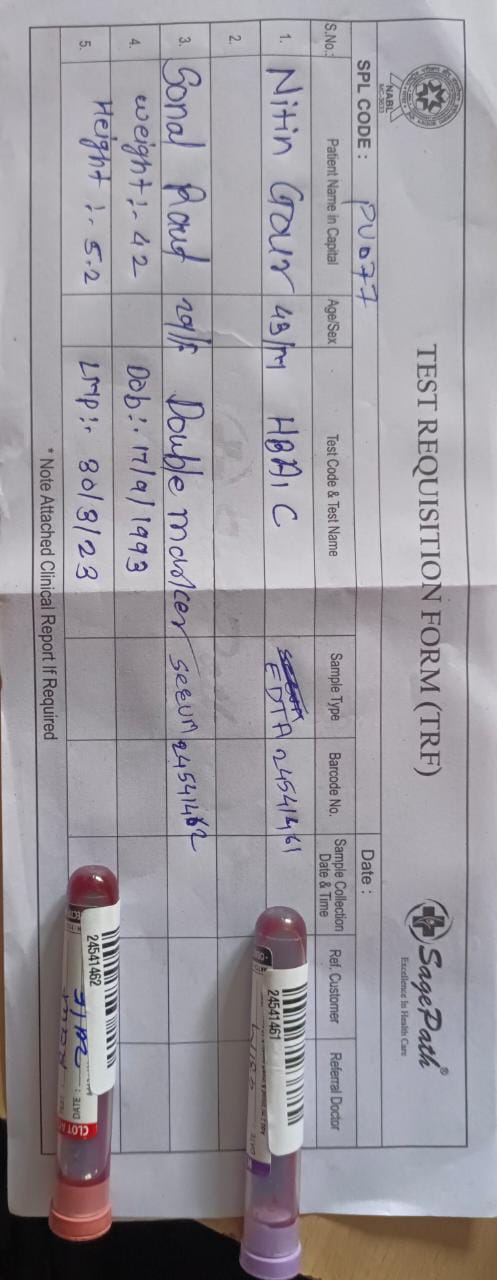 TEST REQUISITION FORM (TRF)
SagePath®
Excellence In Health Care
NABL
MC-3633
SPL CODE : PU077
Date :
S.No.: Patient Name in Capital Age/Sex Test Code & Test Name Sample Type Barcode No. Sample Collection Date & Time Ref. Customer Referral Doctor
1. Nitin Gour 43/M HBA1C EDTA 24541461
2.
3. Sonal Raut 29/F Double marker serum 24541462
4. weight :- 42 Dob :- 17/9/1993
5. Height :- 5.2 LMP :- 30/3/23
* Note Attached Clinical Report If Required
24541461
24541462
DATE :
CLOT AC